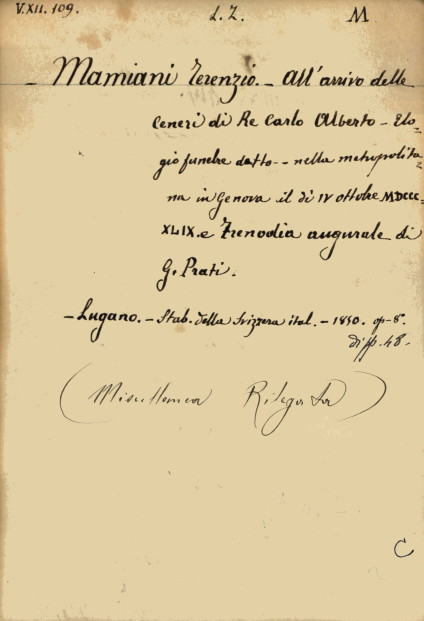 V.XII.109. L.Z. M
- Mamiani Terenzio. - All'arrivo delle
Ceneri di Re Carlo Alberto - Elo-
gio funebre detto -- nella metropolita-
na in Genova il dì IV ottobre MDCCC-
XLIX. e Trenodia augurale di
G. Prati.
- Lugano. - Stab. della Svizzera ital. - 1850. op-8°.
di pp. 48.
(Miscellanea Rilegata)
C